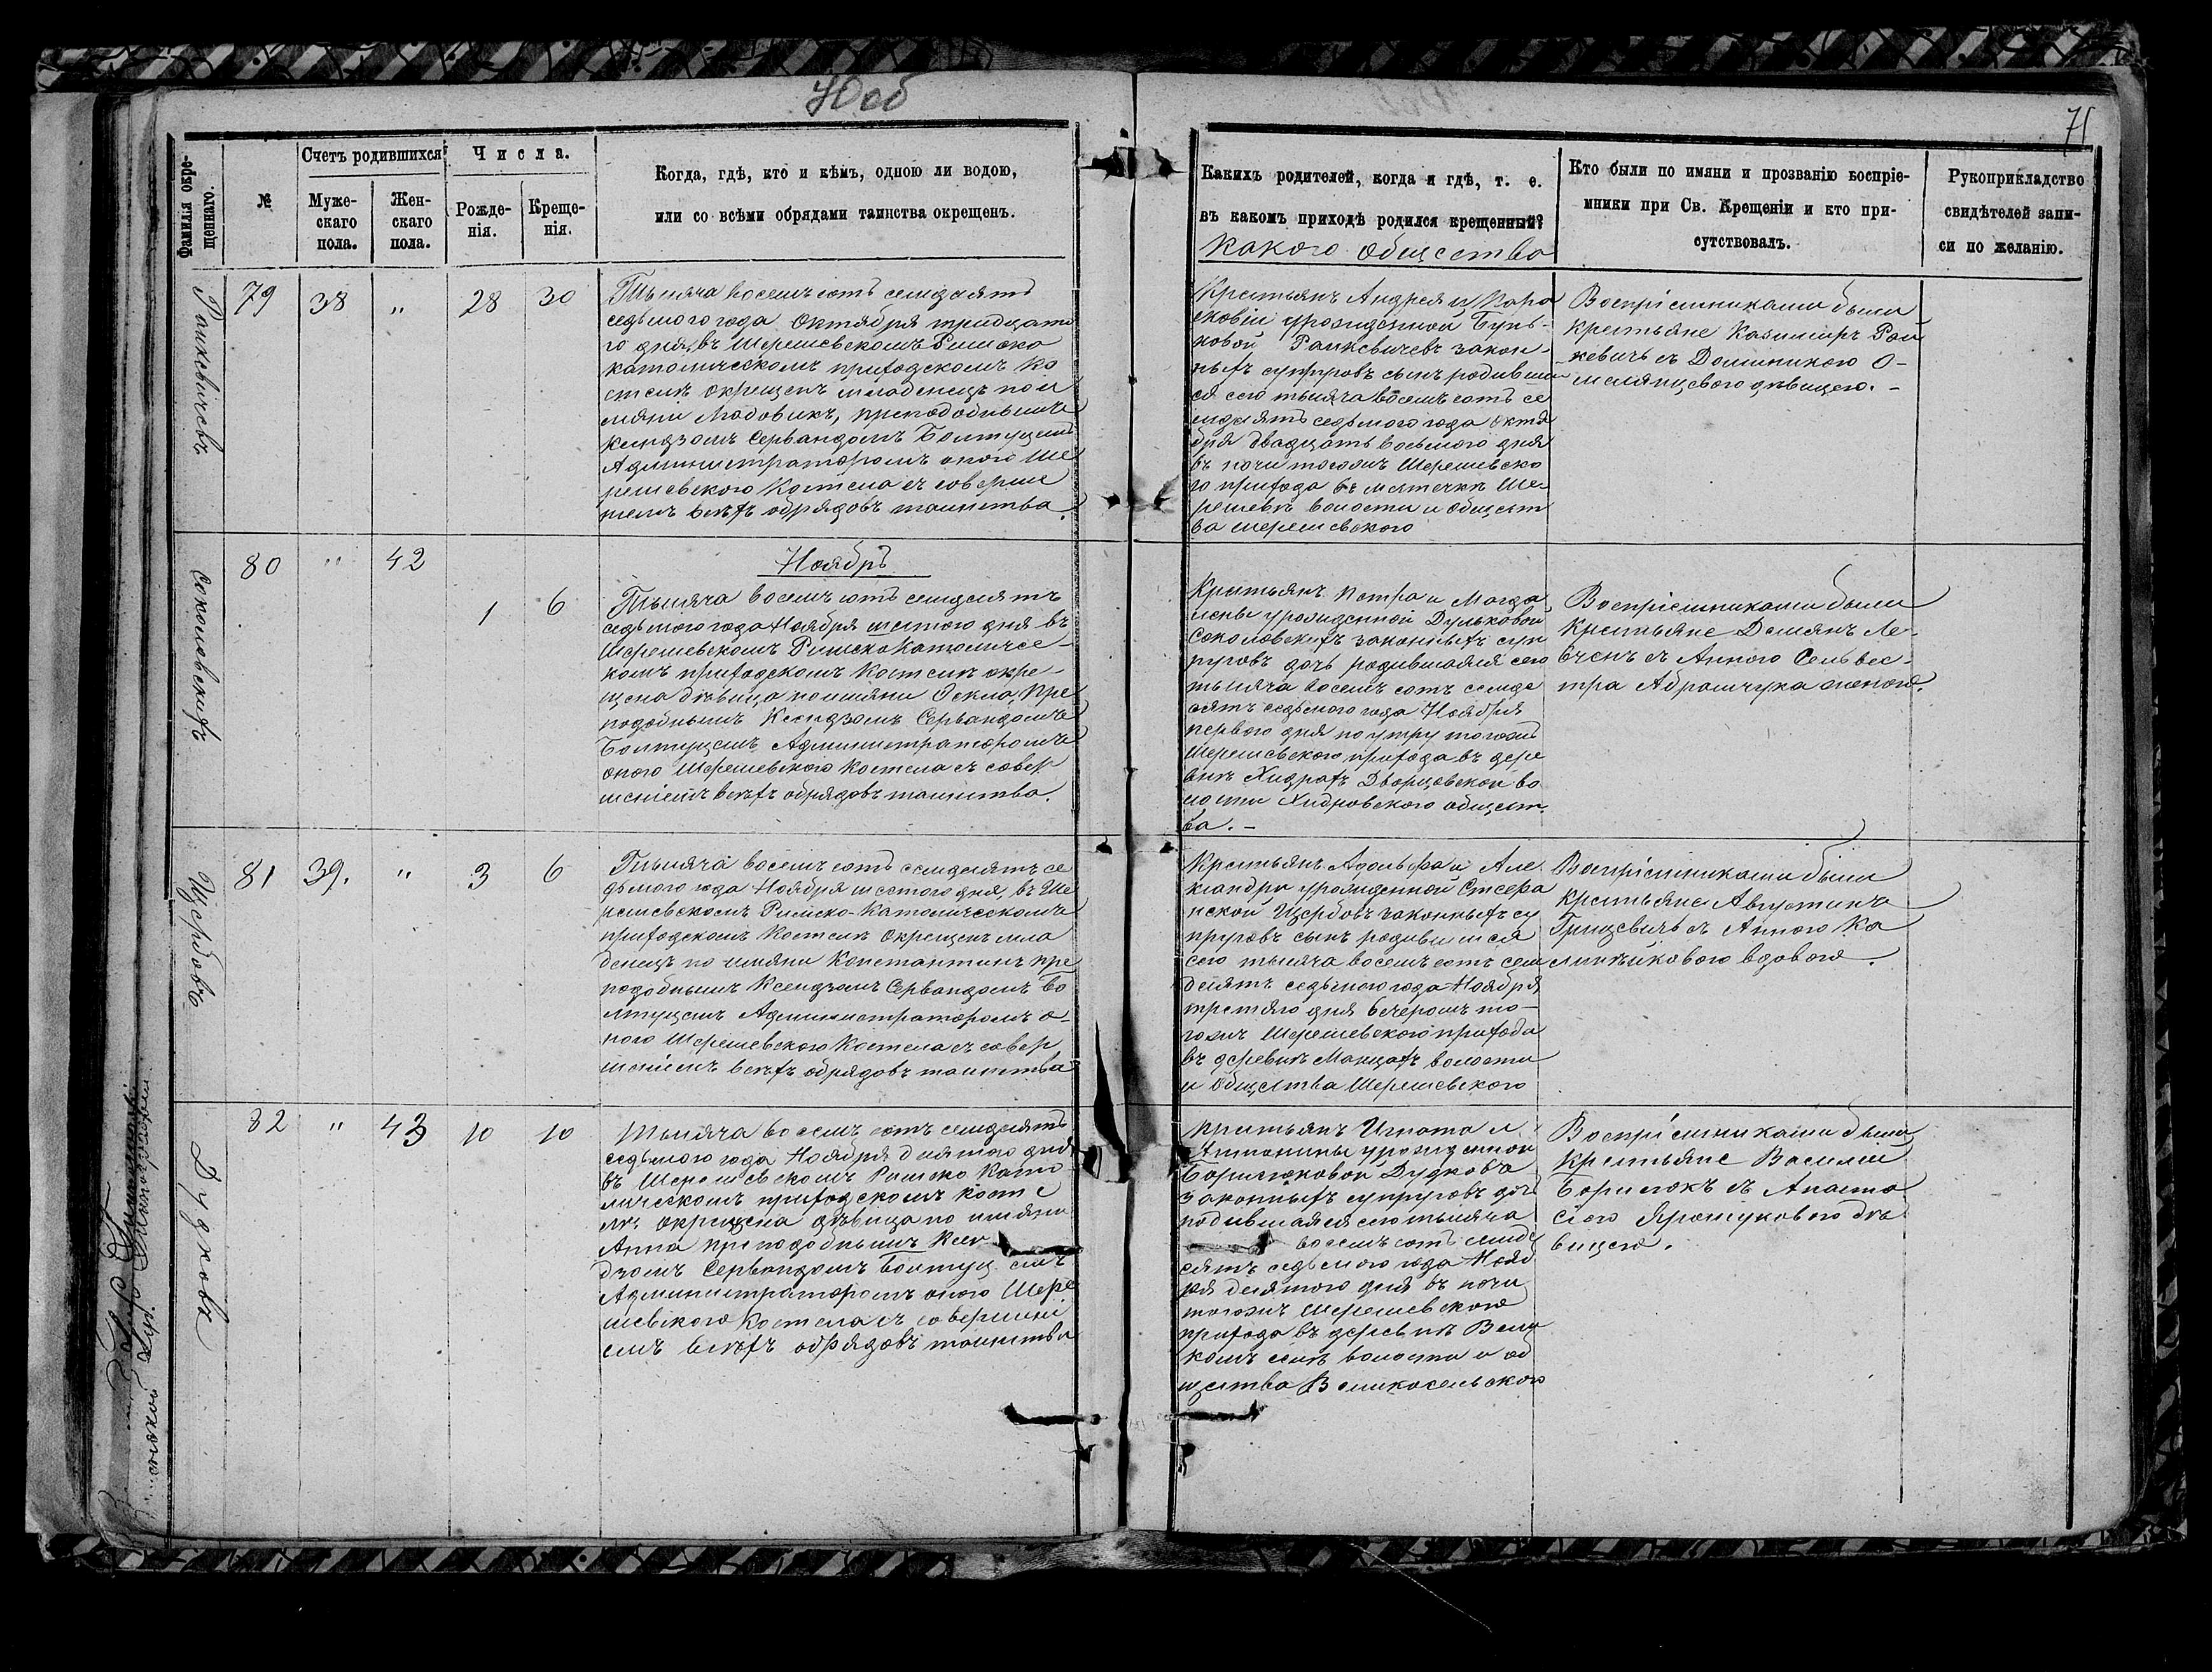 70 об
71
Фамилія окре-
щеннаго.
№
Счетъ родившихся
Муже-
скаго
пола.
Жен-
скаго
пола.
Числа.
Рожде-
нія.
Креще-
нія.
Когда, гдѣ, кто и кѣмъ, одною ли водою,
или со всѣми обрядами таинства окрещенъ.
Какихъ родителей, когда и гдѣ, т. е.
въ какомъ приходѣ родился крещенный?
какого общества
Кто были по имяни и прозванію воспріе-
мники при Св. Крещеніи и кто при-
сутствовалъ.
Рукоприкладство
свидѣтелей запи-
си по желанію.
Ранкевичевъ
79 38 „ 28 30
Тысяча восемъ сотъ семдсятъ
седьмого года Октября тридцата
го дня, въ Шерешевскомъ Римско
католическомъ приходскомъ ко
стелѣ окрещенъ младенецъ по и
мяни Людовикъ, преподобнымъ
ксендзомъ Сервандомъ Болтуцемъ
Администраторомъ оного Ше
решевского Костела съ соверше
ніемъ всѣхъ обрядовъ таинства.
Крестьянъ Андрея и Пара
сковіи урожденной Бунь-
ковой Ранкевичевъ закон-
ныхъ супруговъ сынъ родивши
ся сего тысяча восемъ сотъ се
мдсятъ седьмого года Октя
бря двадцать восьмого дня
въ ночи тогожъ Шерешевско
го прихода въ мѣстечкѣ Ше-
решевѣ волости и общест
ва Шерешевского
Воспріемниками были
крестьяне Казимиръ Ран
кевичъ съ Доминикою О-
мелянцевого дѣвицею. -
Соколовскихъ
80 „ 42 1 6
Ноябрь
Тысяча восемъ сотъ семдсятъ
седьмого года Ноября шестого дня въ
Шерешевскомъ Римско Католичес-
комъ приходскомъ Костелѣ окре-
щена дѣвица по имяни Фекла, Пре
подобнымъ Ксендзомъ Сервандомъ
Болтуцемъ Администраторомъ
оного Шерешевского Костела съ совер
шеніемъ всѣхъ обрядовъ таинства.
Крестьянъ Петра и Магда
лены урожденной Дульковой
Соколовскихъ законныхъ суп
руговъ дочь родившаяся сего
тысяча восемъ сотъ семде
сятъ седьмого года Ноября
первого дня по утру тогожъ
Шерешевского прихода въ дере
внѣ Хидрахъ Дворцовской во
лости Хидровского общест
ва. -
Воспріемниками были
крестьяне Демянъ Ле-
вченъ съ Анною Сельвес-
тра Абрамчука женою.
Щербовъ
81 39. „ 3 6
Тысяча восемъ сотъ семдсятъ се
дьмого года Ноября шестого дня, въ Ше
решевскомъ Римско-Католическомъ
приходскомъ Костелѣ окрещенъ мла
денецъ по имяни Константинъ пре
подобнымъ Ксендзомъ Сервандомъ Бо
лтуцемъ Администраторомъ о-
ного Шерешевского Костела съ совер
шеніемъ всѣхъ обрядовъ таинства
Крестьянъ Адольфа и Але
ксандры урожденной Стефа
нской Щербовъ законныхъ су
пруговъ сынъ родившійся
сего тысяча восемъ сотъ сем
десятъ седьмого года Ноября
третяго дня вечеромъ то-
гожъ Шерешевского прихода
въ деревнѣ волости
и общества Шерешевского
Воспріемниками были
крестьяне Августинъ
Грицевичъ съ Анною Ка
линниковою вдовою.
Дудковъ
82 „ 43 10 10
Тысяча восемъ сотъ семдсятъ
седьмого года Ноября десятого дня
въ Шерешевскомъ Римско Като
лическомъ приходскомъ косте
лѣ окрещена дѣвица по имяни
Анна преподобнымъ Ксен
дзомъ Сервандомъ Болтуцемъ
Администраторомъ оного Шере
шевского Костела съ совершені
емъ всѣхъ обрядовъ таинства
Крестьянъ Игната и
Антонины урожденной
Борисюковой Дудковъ
законныхъ супруговъ дочь
родившаяся сего тысяча
восемъ сотъ семде
сятъ седьмого года Нояб
ря десятого дня въ ночи
тогожъ Шерешевского
прихода въ деревнѣ Вели
комъ селѣ волости и об
щества Великосельского
Воспріемниками были
крестьяне Василій
Борисюкъ съ Анаста
сіею Ярошуковою дѣ
вицею.